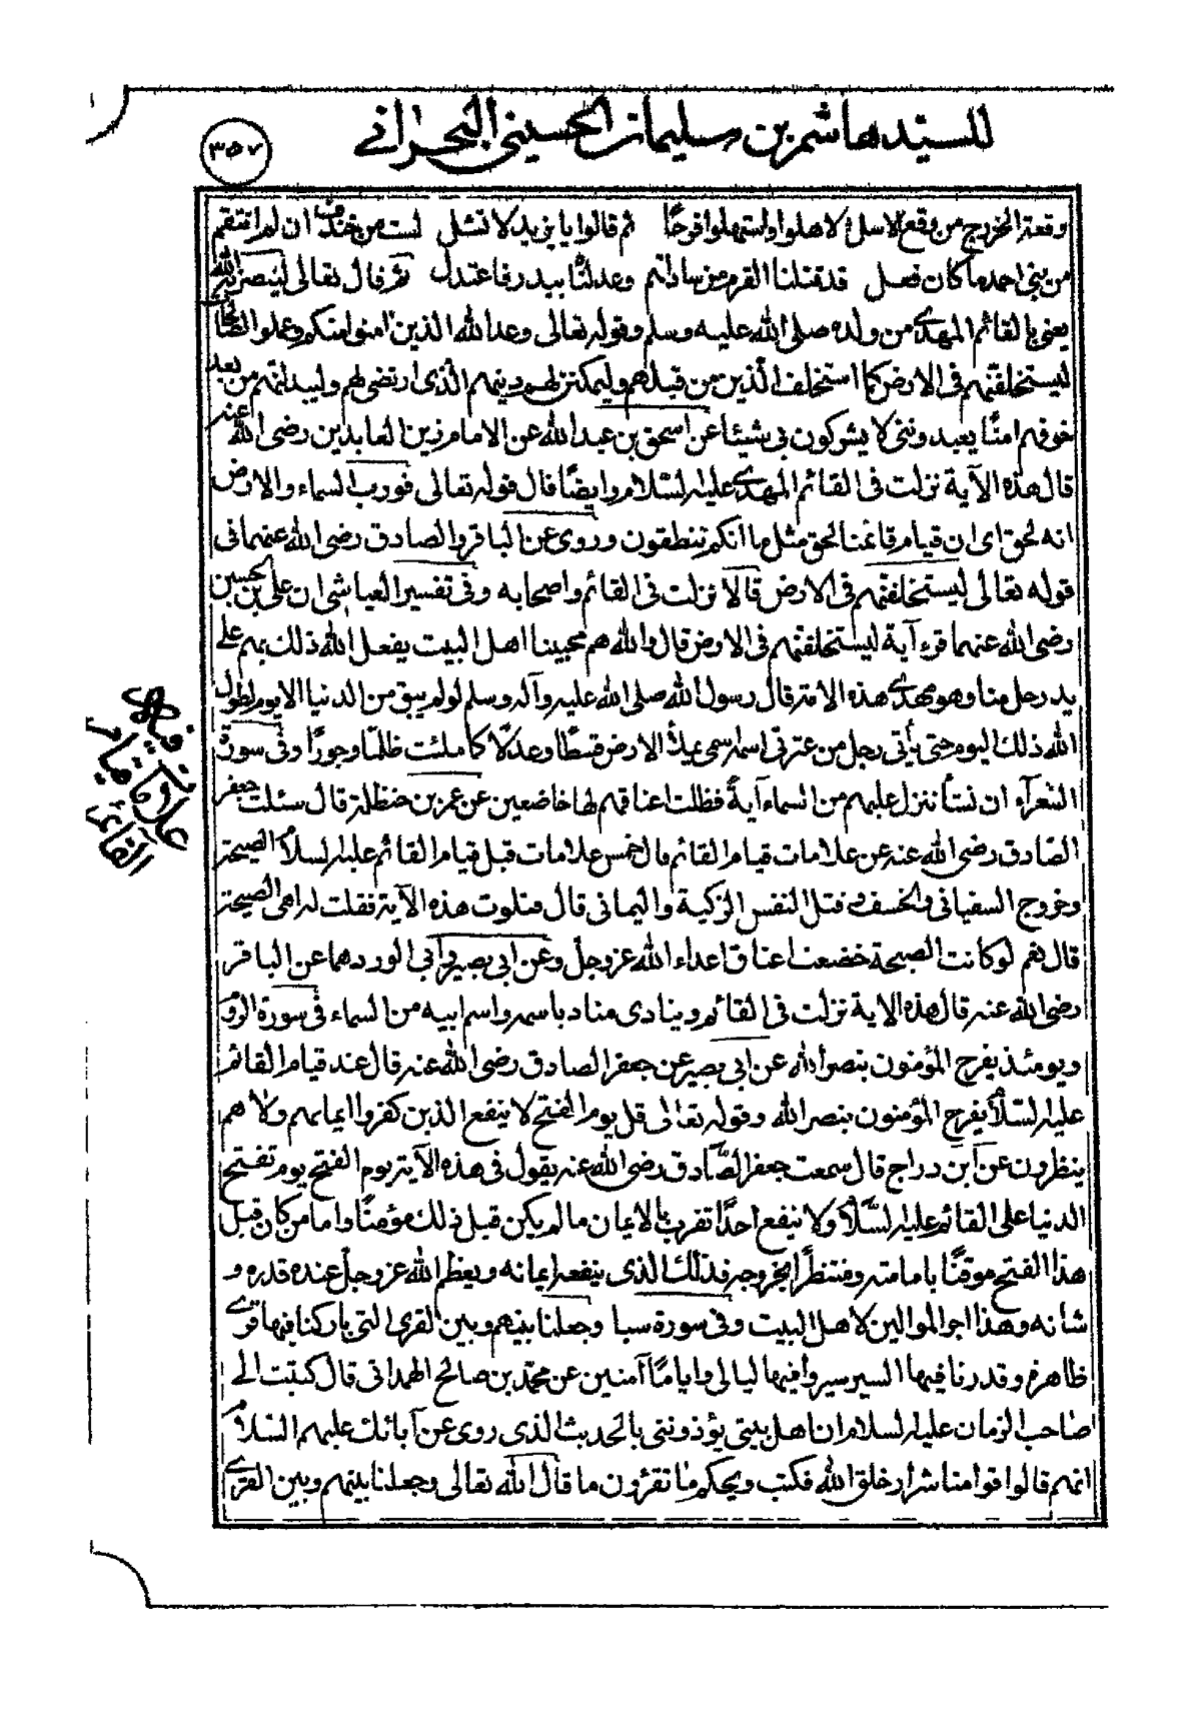 للسيد هاشم بن سليمان الحسيني البحراني
٣٥٧
وقعة الخزرج من وقع الاسل لاهلوا واستهلوا فرحًا ثم قالوا يا يزيد لا تشل لست من خندف ان لم انتقم
من بني احمد ما كان فعل قد قتلنا القرم من ساداتهم وعدلنا ببدر فاعتدل ثم قال تعالى لينصرنه الله
يعني بالقائم المهدي من ولده صلى الله عليه وسلم وقوله تعالى وعد الله الذين امنوا منكم وعملوا الصالحات
ليستخلفنهم في الارض كما استخلف الذين من قبلهم وليمكنن لهم دينهم الذي ارتضى لهم وليبدلنهم من بعد
خوفهم امنًا يعبدونني لا يشركون بي شيئا عن اسحق بن عبد الله عن الامام زين العابدين رضى الله عنه
قال هذه الآية نزلت في القائم المهدي عليه السلام وايضًا قال قوله تعالى فورب السماء والارض
انه لحق اي ان قيام قائمنا لحق مثل ما انكم تنطقون وروى عن الباقر والصادق رضى الله عنهما في
قوله تعالى ليستخلفنهم في الارض قالا نزلت في القائم واصحابه وفي تفسير العياشي ان على بن الحسين
رضى الله عنهما قرء آية ليستخلفنهم في الارض قال والله هم محبينا اهل البيت يفعل الله ذلك بهم على
يد رجل منا وهو مهدي هذه الامة قال رسول الله صلى الله عليه وآله وسلم لو لم يبق من الدنيا الا يوم لطول
الله ذلك اليوم حتى يأتي رجل من عترتي اسمه سمي يملأ الارض قسطًا وعدلًا كما ملئت ظلمًا وجورًا وفي سورة
الشعرآء ان نشأ ننزل عليهم من السماء آيةً فظلت اعناقهم لها خاضعين عن عمر بن حنظلة قال سئلت جعفر
الصادق رضى الله عنه عن علامات قيام القائم قال خمس علامات قبل قيام القائم عليه السلام الصيحة
وخروج السفياني والخسف وقتل النفس الزكية واليماني قال فتلوت هذه الآية فقلت له اهى الصيحة
قال نعم لو كانت الصيحة خضعت اعناق اعداء الله عز وجل وعن ابى بصير وابي الورد هما عن الباقر
رضى الله عنه قال هذه الاية نزلت في القائم وينادى مناد باسمه واسم ابيه من السماء في سورة الروم
ويومئذ يفرح المؤمنون بنصر الله عن ابي بصير عن جعفر الصادق رضى الله عنه قال عند قيام القائم
عليه السلام يفرح المؤمنون بنصر الله وقوله تعالى قل يوم الفتح لا ينفع الذين كفروا ايمانهم ولا هم
ينظرون عن ابن دراج قال سمعت جعفر الصادق رضى الله عنه يقول في هذه الآية يوم الفتح يوم تفتح
الدنيا على القائم عليه السلام ولا ينفع احدًا تقرب بالايمان ما لم يكن قبل ذلك مؤمنًا واما من كان قبل
هذا الفتح موقنًا بامامته ومنتظرًا لخروجه فذلك الذى ينفعه ايمانه ويعظم الله عز وجل عنده قدره و
شانه وهذا اجر الموالين لاهل البيت وفي سورة سبا وجعلنا بينهم وبين القرى التي باركنا فيها قرى
ظاهرة وقدرنا فيها السير سيروا فيها ليالى وايامًا آمنين عن محمد بن صالح الهمدانى قال كتبت الى
صاحب الزمان عليه السلام ان اهل بيتي يؤذونني بالحديث الذى روى عن آبائك عليهم السلام
انهم قالوا قوامنا شرار خلق الله فكتب ويحكم ما تقرؤن ما قال الله تعالى وجعلنا بينهم وبين القرى
علامات
قيام
القائم